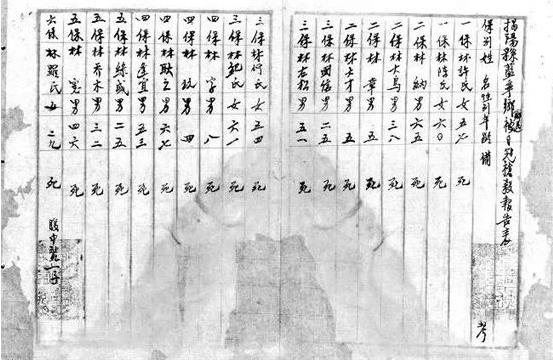 揭陽縣藍亭鄉被日寇槍殺報告表
保別姓名性別年齡備考
一保林許氏女五七死
一保林陳氏女六〇死
二保林納男六五死
二保林大烏男三八死
二保林章男五死
二保林才男五死
三保林國信男二五死
三保林老松男五一死
三保林何氏女五四死
三保林紀氏女六一死
四保林字男八死
四保林 男四死
四保林耿之男六七死
四保林達宜男五三死
五保林綿或男二五死
五保林喬木男三二死
五保林寬男四六死
六保林羅氏女二九死
腹中